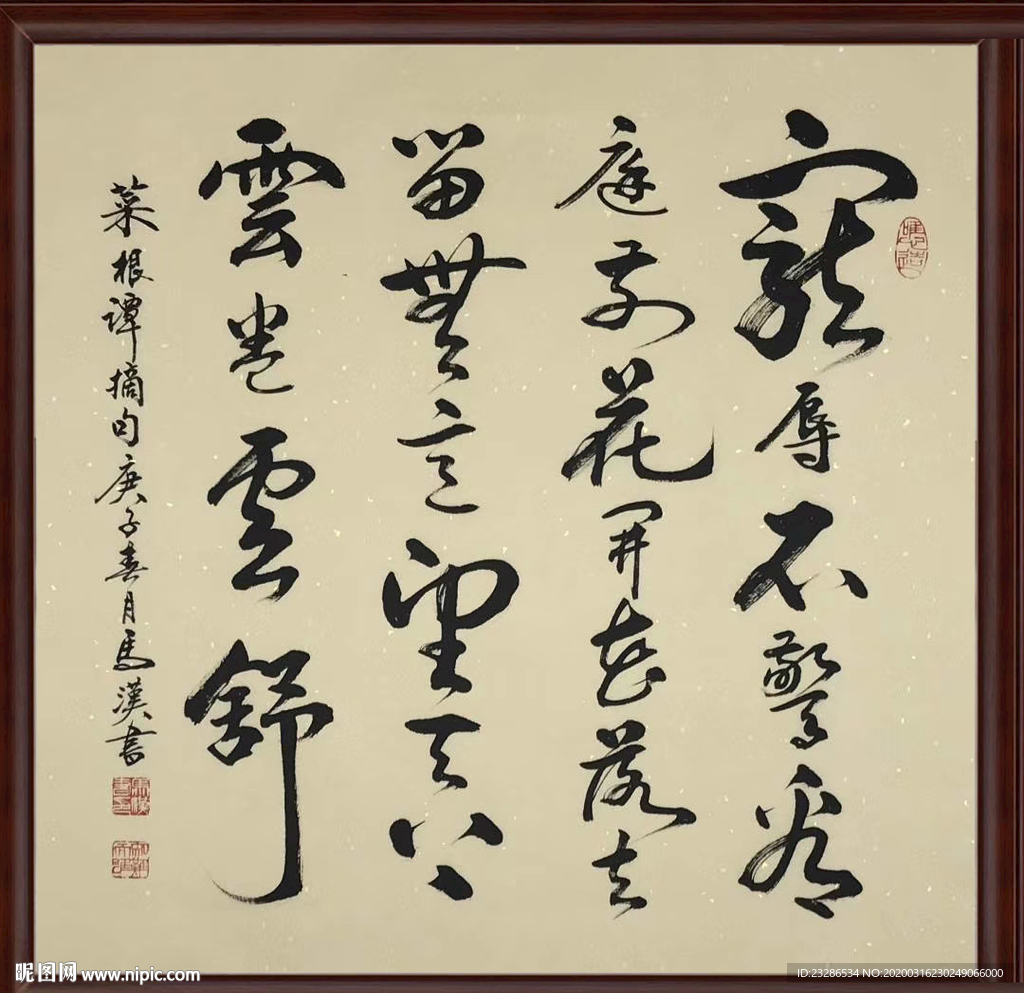 寵辱不驚看
庭前花開花落去
留無意望天外
雲卷雲舒
菜根譚摘句庚子春月馬漢書
昵图网 www.nipic.com
ID:23286534 NO:20200316230249066000